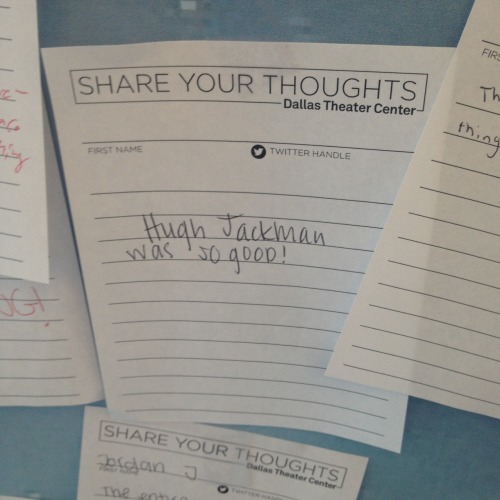 SHARE YOUR THOUGHTS
Dallas Theater Center
FIRST NAME
TWITTER HANDLE
Hugh Jackman
was so good!
FIRS
Th
thing
SHARE YOUR THOUGHTS
Dallas Theater Center
Jordan J
TWITTER HANDLE
The entire